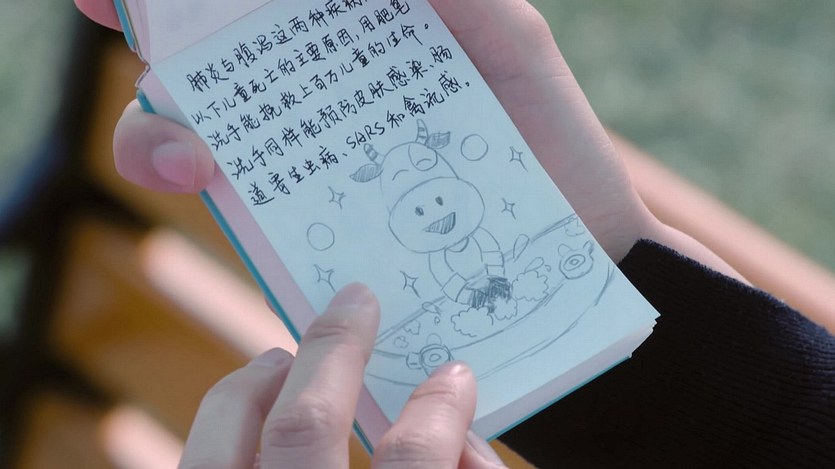 肺炎与腹泻这两种疾病
以下儿童死亡的主要原因，用肥皂
洗手能挽救上百万儿童的生命。
洗手同样能预防皮肤感染、肠
道寄生虫病、SARS和禽流感。